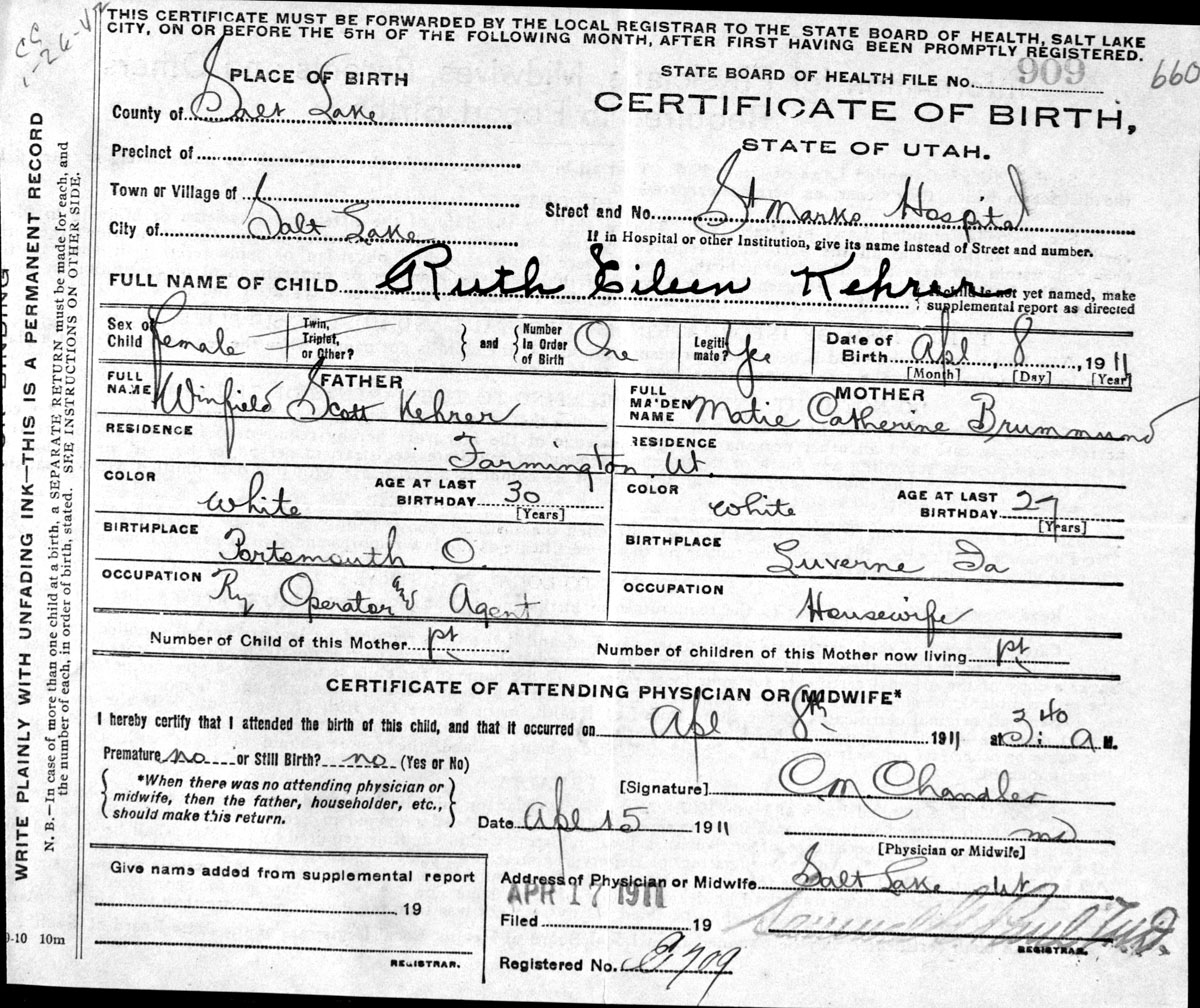 THIS CERTIFICATE MUST BE FORWARDED BY THE LOCAL REGISTRAR TO THE STATE BOARD OF HEALTH, SALT LAKE
CITY, ON OR BEFORE THE 5TH OF THE FOLLOWING MONTH, AFTER FIRST HAVING BEEN PROMPTLY REGISTERED.
PLACE OF BIRTH
STATE BOARD OF HEALTH FILE No. 909
660
County of Salt Lake
CERTIFICATE OF BIRTH,
Precinct of
STATE OF UTAH.
Town or Village of
Street and No. St Marks Hospital
City of Salt Lake
If in Hospital or other Institution, give its name instead of Street and number.
FULL NAME OF CHILD Ruth Eileen Kehrer
If child is not yet named, make
supplemental report as directed
Sex of Child Female
Twin, Triplet, or Other?
and
Number in Order of Birth One
Legitimate? Yes
Date of Birth Apl 8, 1911
[Month] [Day] [Year]
FATHER
FULL NAME Winfield Scott Kehrer
MOTHER
FULL MAIDEN NAME Matie Catherine Brummund
RESIDENCE
RESIDENCE
Farmington Ut.
COLOR white
AGE AT LAST BIRTHDAY 30
[Years]
COLOR white
AGE AT LAST BIRTHDAY 27
[Years]
BIRTHPLACE Portsmouth O.
BIRTHPLACE Luverne Ia
OCCUPATION Ry Operator and Agent
OCCUPATION Housewife
Number of Child of this Mother
Number of children of this Mother now living
CERTIFICATE OF ATTENDING PHYSICIAN OR MIDWIFE*
I hereby certify that I attended the birth of this child, and that it occurred on Apl 8th 1911 at 3:40 A M.
Premature no or Still Birth? no (Yes or No)
*When there was no attending physician or
midwife, then the father, householder, etc.,
should make this return.
[Signature] C.M. Chandler
Date Apl 15 1911
MD
[Physician or Midwife]
Give name added from supplemental report
Address of Physician or Midwife Salt Lake Ut
19
APR 17 1911
Filed 19
REGISTRAR.
REGISTRAR.
Registered No.
9-10 10m
WRITE PLAINLY WITH UNFADING INK—THIS IS A PERMANENT RECORD
N. B.—In case of more than one child at a birth, a SEPARATE RETURN must be made for each, and
the number of each, in order of birth, stated. SEE INSTRUCTIONS ON OTHER SIDE.